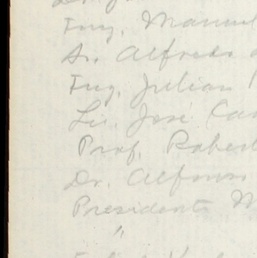 Ing. Manuel
Sr. Alfredo
Ing. Julian
Lic. José Cas
Prof. Robert
Dr. Alfonso
Presidente M
"